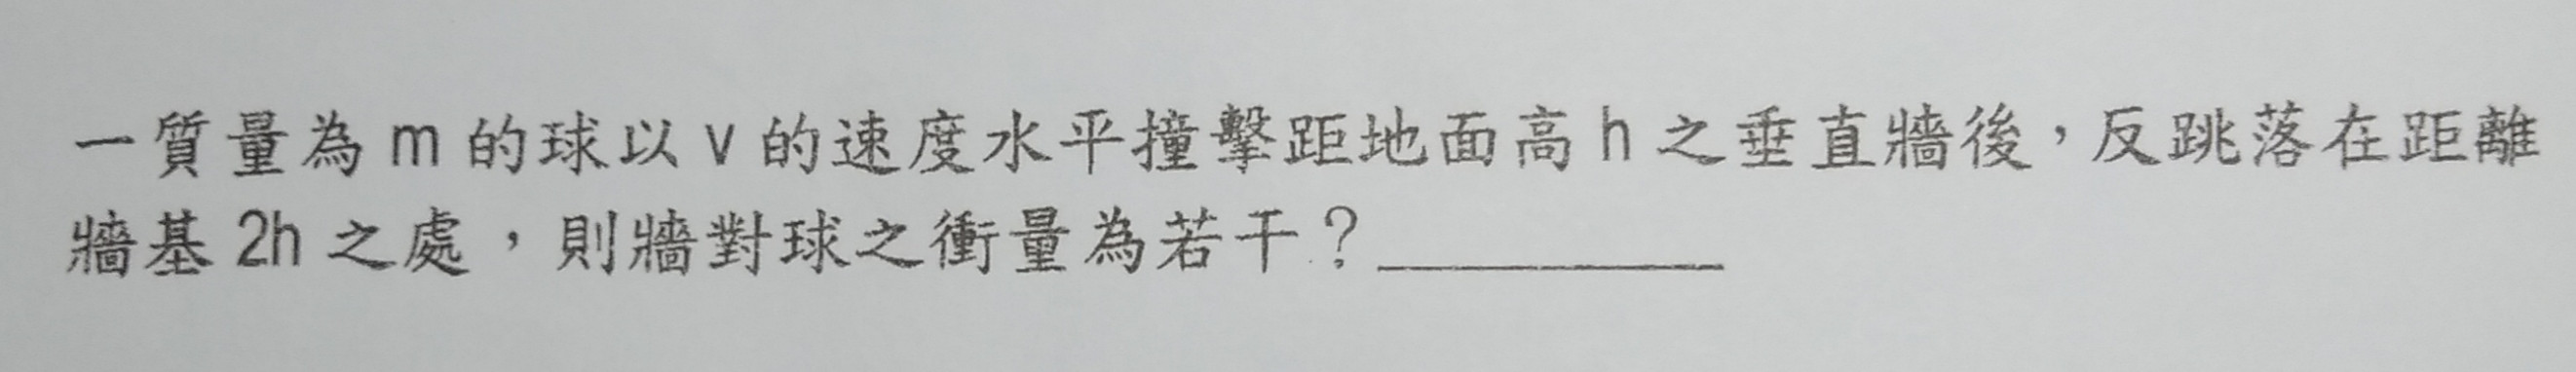 一質量為 m 的球以 v 的速度水平撞擊距地面高 h 之垂直牆後，反跳落在距離
牆基 2h 之處，則牆對球之衝量為若干？__________